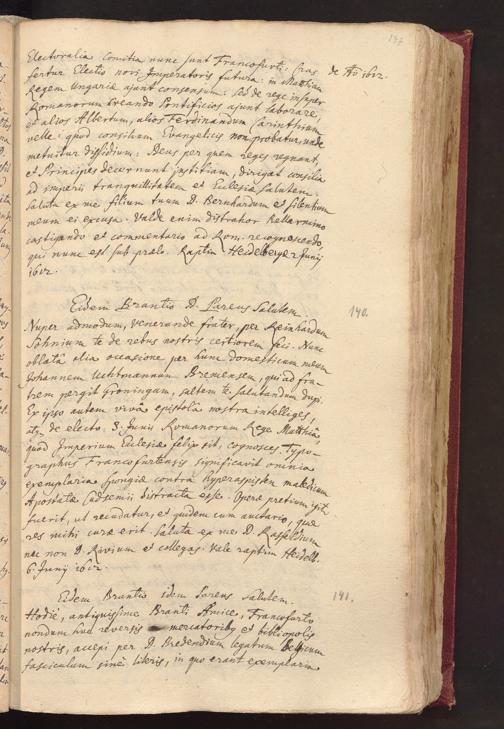 137
Electoralia comitia nunc sunt Francofurti: Cras
de Aō 1612.
fertur Electio novi Imperatoris futura: in Matthiam
Regem Ungariæ ajunt consensum: Sed de rege insuper
Romanorum creando Pontificios ajunt laborare,
et alios Albertum, alios Ferdinandum Carinthium
velle: quod consilium Evangelicis non probatur, unde
metuitur dissidium: Deus per quem reges regnant,
et Principes decernunt justitiam, dirigat consilia
ad imperii tranquillitatem et Ecclesiæ salutem.
Saluta ex me filium tuum D. Bernhardum et silentium
meum ei excusa. Valde enim distrahor Bellarmino
castigando et commentario ad Rom: recognoscendo,
qui nunc est sub prælo. Raptim Heidelbergæ 2 Junij
1612.
Eidem Brantio D. Pareus Salutem.
140.
Nuper admodum, venerande frater, per Reinhardum
Sohnium te de rebus nostris certiorem feci. Nunc
oblata alia occasione per hunc domesticum meum
Johannem Uchtmannum Bremensem, qui ad fra-
trem pergit Groningam, saltem te salutandum duxi.
Ex ipso autem vivâ epistolâ nostra intelliges,
de electo 3. Junis Romanorum Rege Matthia,
quod Imperium Ecclesiæ felix sit, cognosces. Typo-
graphus Francofurtensis significavit omnia
exemplaria contra hyperaspisten
Apostatæ distracta esse. Operæ pretium igit
fuerit, ut recudatur, et quidem cum auctario, quæ
res mihi curæ erit. Saluta ex me D.
nec non D. Rivium et collegas. Vale raptim Heidelb.
6. Junij 1612.
Eidem Brantio idem Pareus salutem.
141.
Hodie, antiquissime Branti Amice, Francofurto
nondum huc reversis mercatoribus et bibliopolis
nostris, accepi per D. Brederodium legatum Belgicum
fasciculum sine literis, in quo erant exemplaria